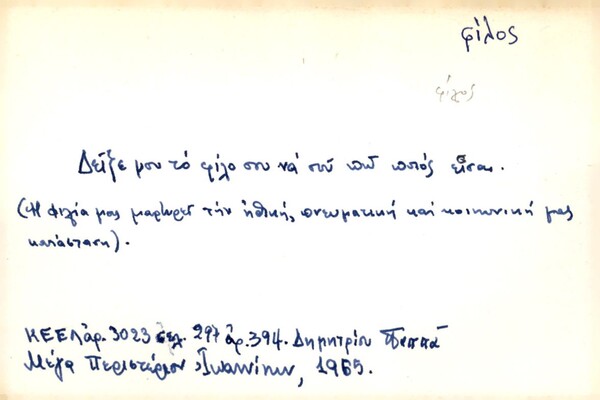 φίλος
φίλος
Δεῖξε μου τό φίλο σου νά σοῦ πῶ ποιός εἶσαι.
(Ἡ φιλία μας μαρτυρεῖ τήν ἠθική, πνευματική καί κοινωνική μας
κατάσταση).
ΚΕΕΛ ἀρ. 3023 σελ. 297 ἀρ. 394. Δημητρίου Παππᾶ
Μέγα Περιστέριον Ἰωαννίνων, 1965.